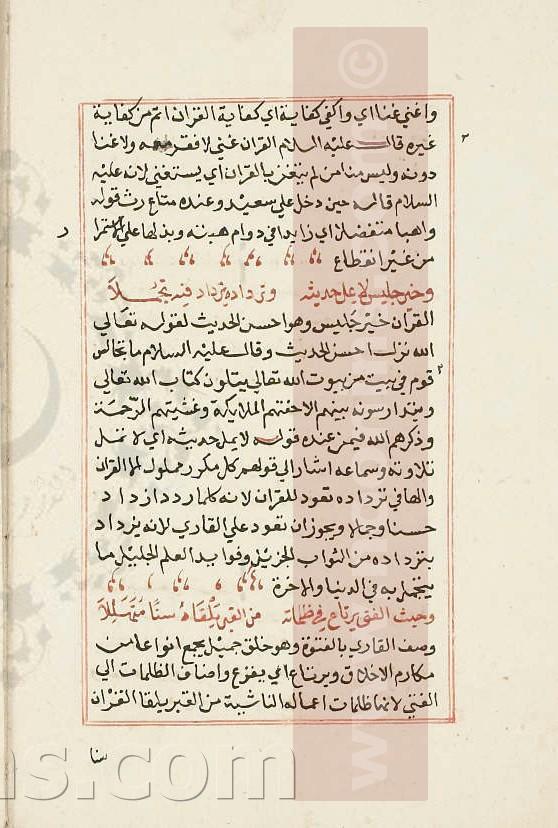 واغني غنا اي واكفي كفاية اي كفاية القران اتم من كفاية
غيره قال عليه السلام القران غني لا فقر معه ولا غنا
دونه وليس منا من لم يتغن بالقران اي يستغني لانه عليه
السلام قاله حين دخل علي سعيد وعنده متاع رث قوله
واهبا متفضلا اي زايدا في دوام هبته وبذلها علي الاستمرا
ر
من غير انقطاع
وخير جليس لا يمل حديثه وترداده يزداد فيه تجملا
القران خير جليس وهو احسن الحديث لقوله تعالي
الله نزل احسن الحديث وقال عليه السلام ما تجالس
قوم في بيت من بيوت الله تعالي يتلون كتاب الله تعالي
ويتدارسونه بينهم الا حفتهم الملايكة وغشيتهم الرحمة
وذكرهم الله فيمن عنده قوله لا يمل حديثه اي لا تمل
تلاوته وسماعه اشار الي قولهم كل مكرر مملول الا القران
والها في ترداده تعود للقران لانه كلما ردد ازداد
حسنا وجمالا ويجوز ان تعود علي القاري لانه يزداد
بترداده من الثواب الجزيل وفوايد العلم الجليل ما
يتجمل به في الدنيا والاخرة
وحيث الفتي يرتاع في ظلماته من القبر يلقاه سنا متهللا
وصف القاري بالفتوة وهو خلق جميل يجمع انواعا من
مكارم الاخلاق ويرتاع اي يفزع واضاف الظلمات الي
الفتي لانها ظلمات اعماله الناشية من القبر يلقا القران
سنا